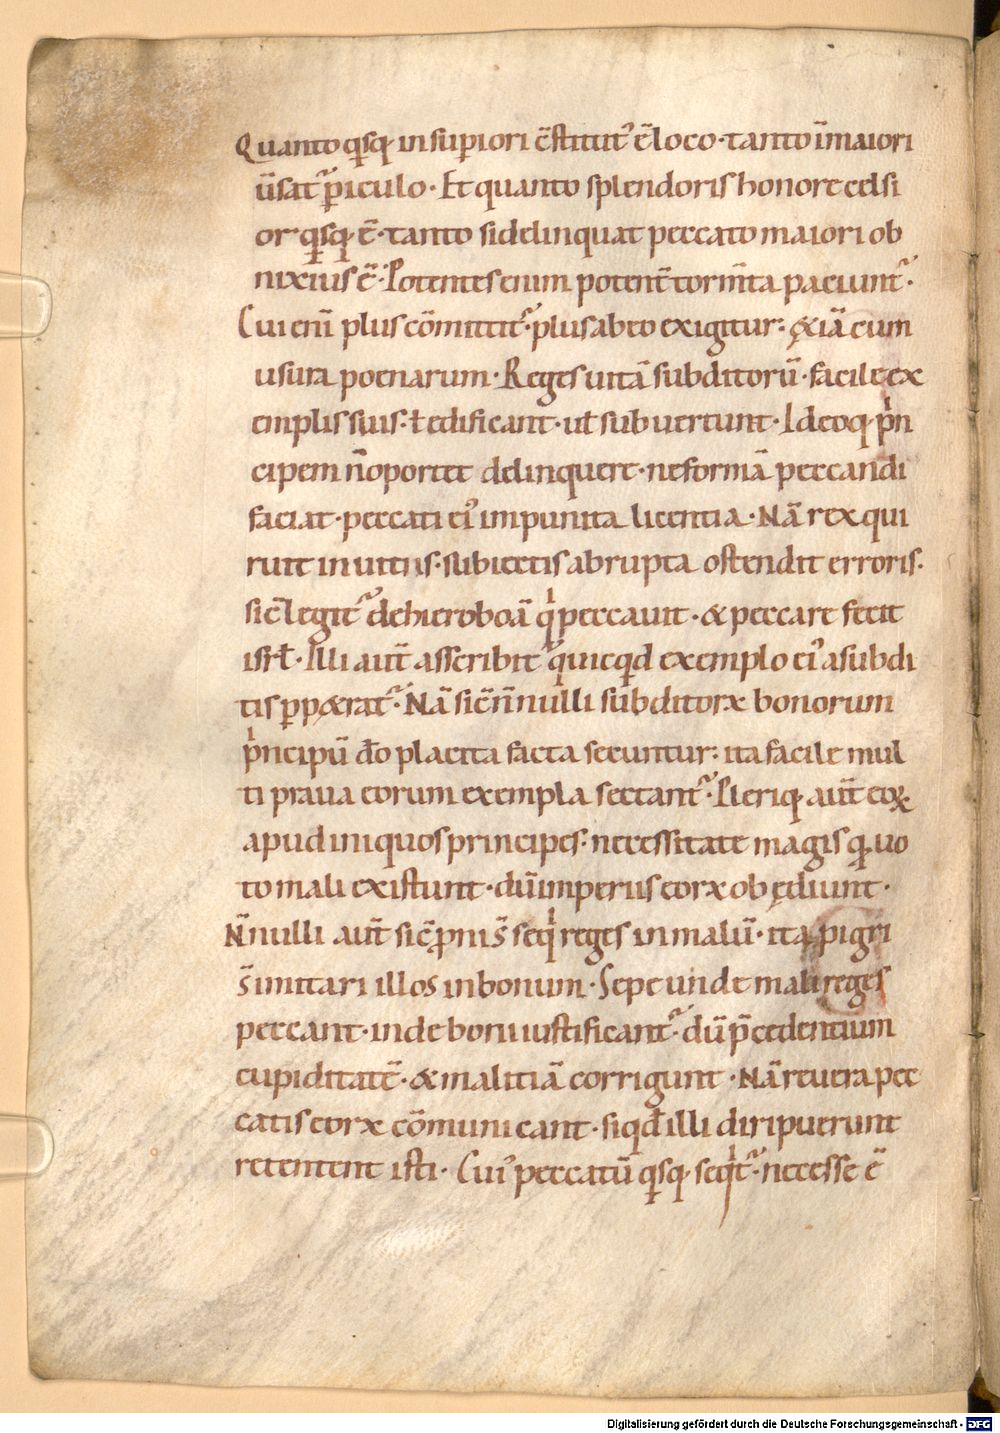 Quanto qisq; insuꝑiori c̄stitut᷒ ē loco · tanto īmaiori
ūsat᷑ ꝑiculo · Et quanto splendoris honore celsi
or qisq; ē · tanto si delinquat peccato maiori ob
nixius ē · Potentes enim potent̄ torm̄ta paciunt᷑ ·
Cui enī plus cōmittit᷑ · plus ab eo exigitur : &iā cum
usura poenarum · Reges uitā subditorū · facile ex
emplis suis · ł edificant · uł subuertunt · Ideoq; pⁱn
cipem n̄ oportet delinquere · ne formā peccandi
faciat · peccati ei᷒ impunita licentia · Nā rex qui
ruit in uitiis · subiectis abrupta ostendit erroris ·
sic̄ legit᷑ de hieroboā qⁱ peccauit · & peccare fecit
isrł · Illi aut̄ asscribit᷑ quicqd exemplo ei᷒ a subdi
tis ꝑp&rat᷑ · Nā sic̄ n̄nulli subditorꝝ bonorum
pⁱncipū dō placita facta secuntur : ita facile mul
ti praua eorum exempla sectant᷑ · Pleriq; aut̄ eoꝝ
apud iniquos principes · necessitate magis qͣ uo
to mali existunt · dū imperiis eorꝝ obędiunt ·
N̄nulli aut̄ sic̄ ꝓni s̄ seqⁱ reges in malū · ita pigri
s̄ imitari illos in bonum · Sepe unde mali reges
peccant · inde boni iustificant᷑ · dū p̄cedentium
cupiditatē · & malitiā corrigunt · Nā reuera pec
catis eorꝝ cōmunicant · si qđ illi diripuerunt
retentent isti · Cui᷒ peccatū qisq; seqⁱt᷑ · necesse ē
Digitalisierung gefördert durch die Deutsche Forschungsgemeinschaft - DFG